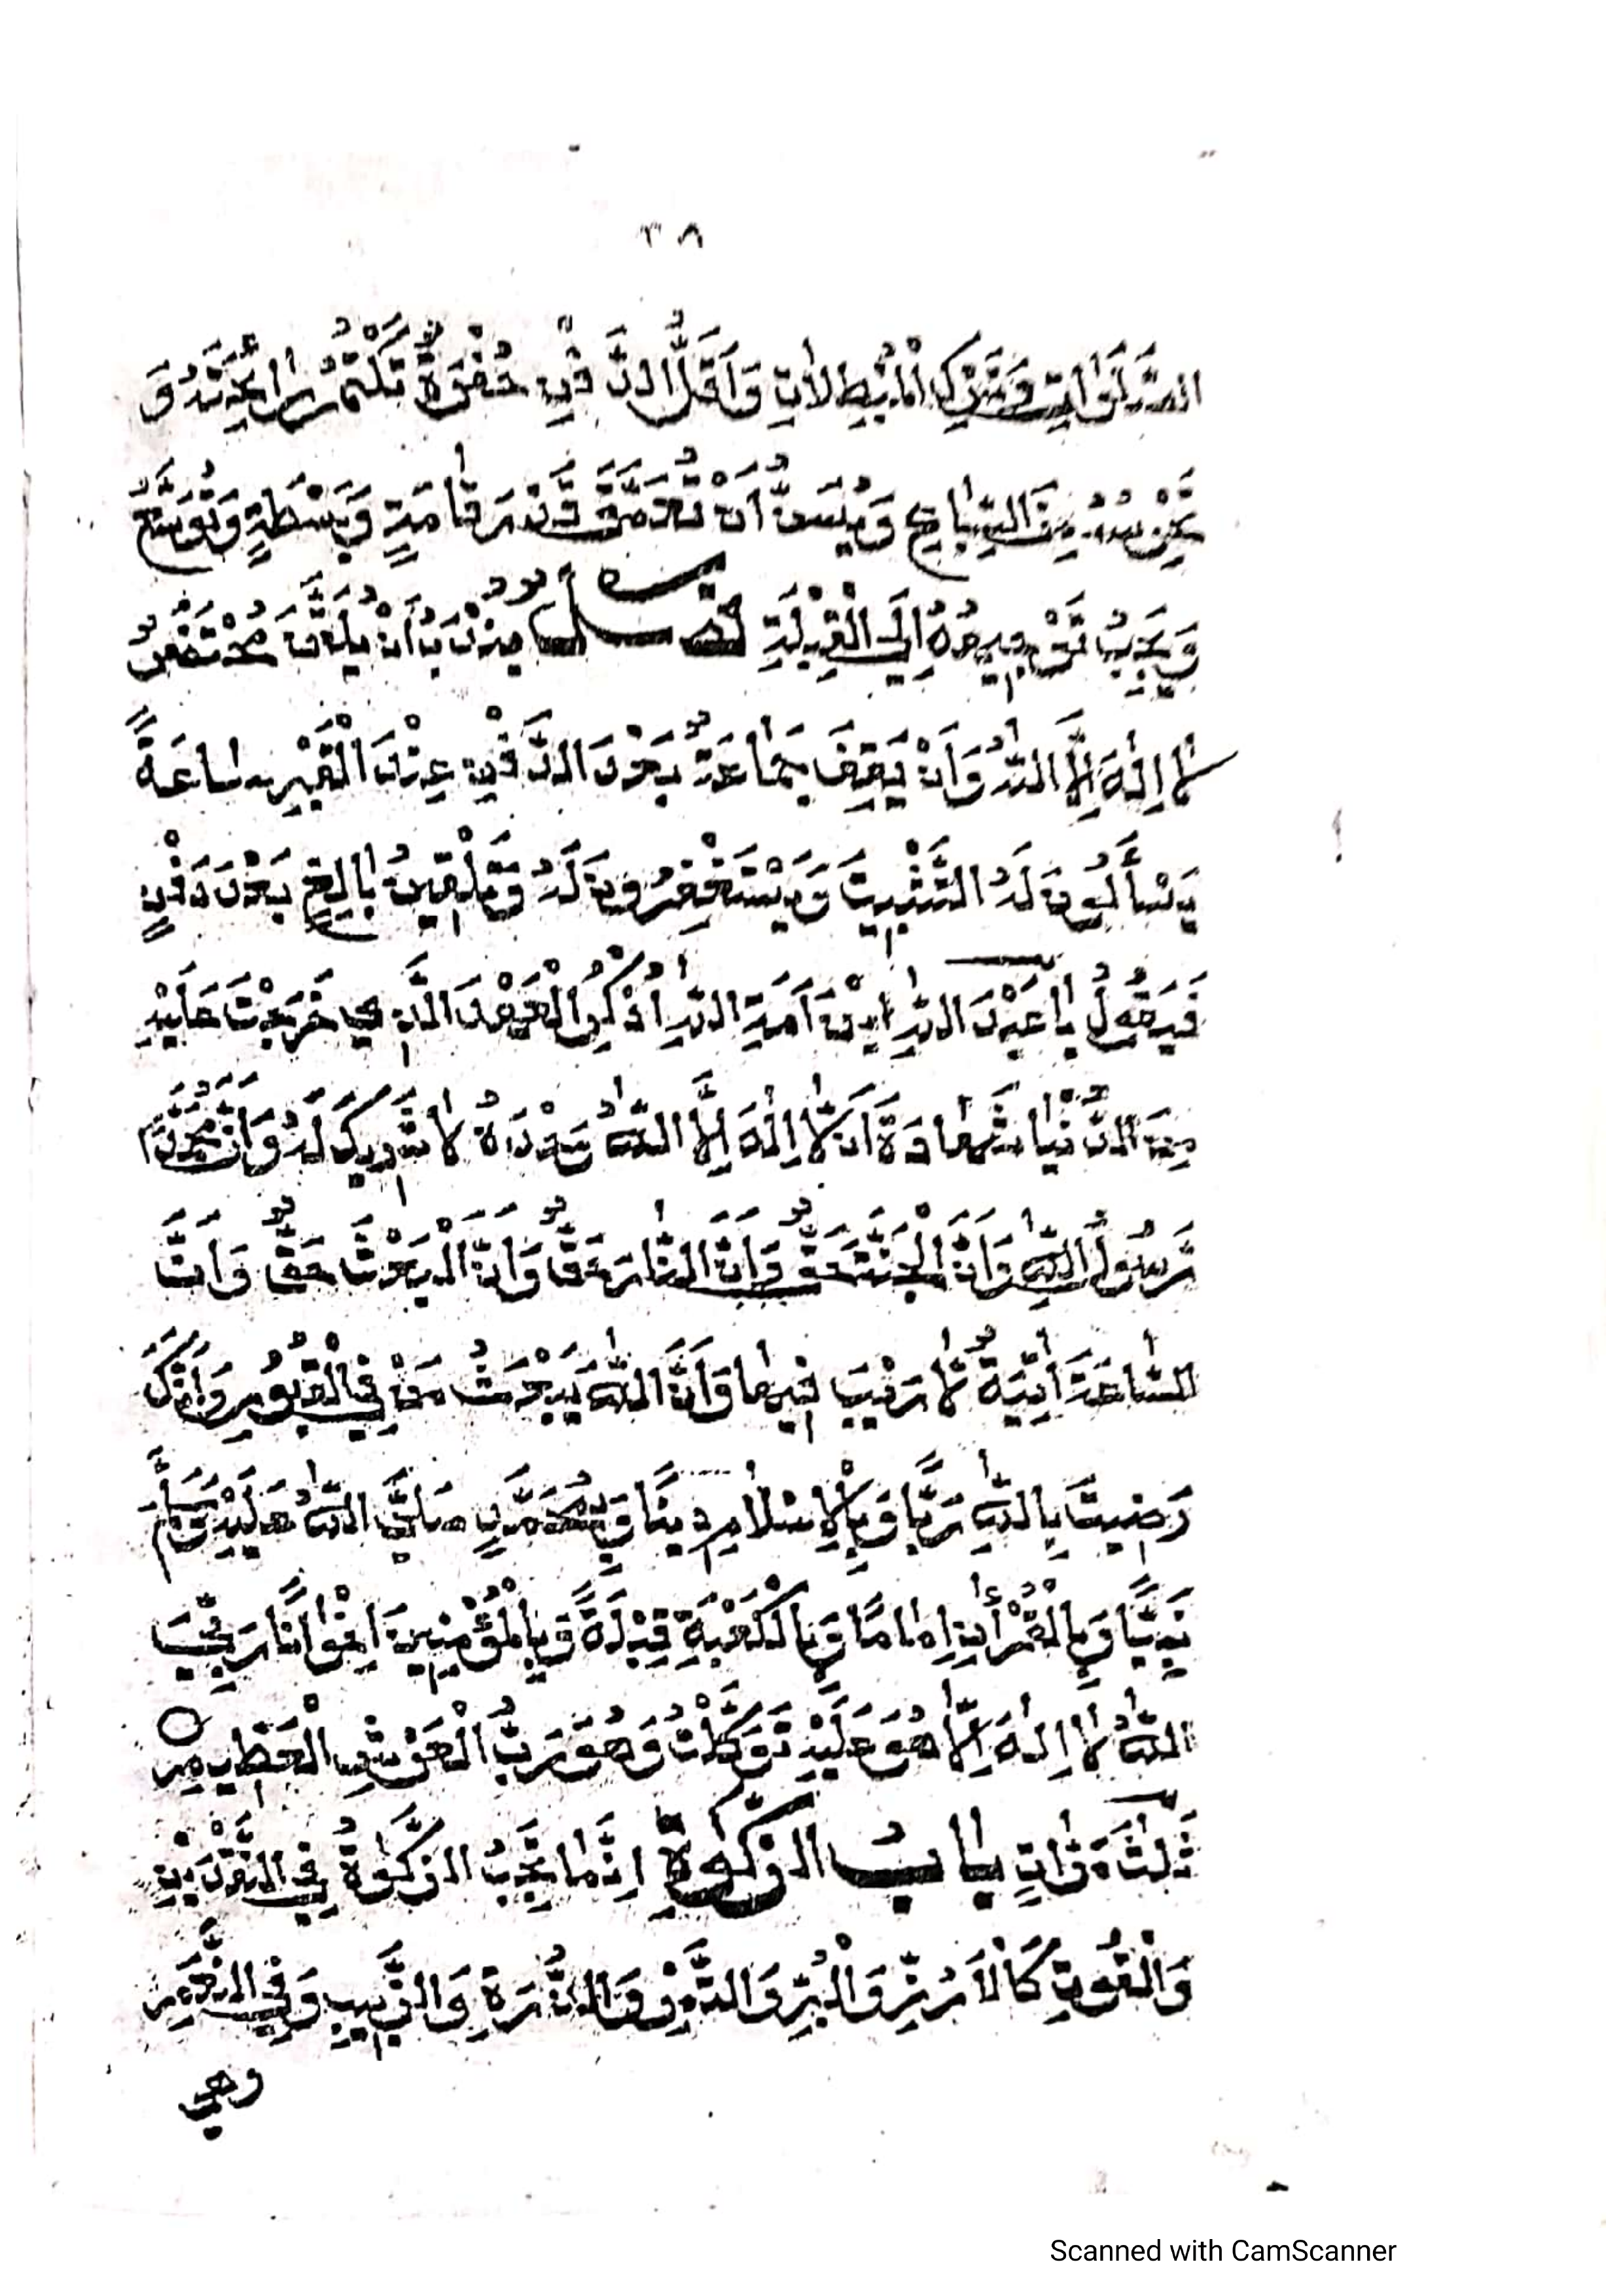 ٣٨
الصَّلَوَاتِ وَتَرْكِ الْمُبْطِلَاتِ وَأَقَلُّ الدَّفْنِ حُفْرَةٌ تَكْتُمُ رَائِحَتَهُ وَ
تَحْرُسُهُ مِنَ السِّبَاعِ وَيُسَنُّ أَنْ تُعَمَّقَ قَدْرَ قَامَةٍ وَبَسْطَةٍ وَتُوَسَّعُ
وَيَجِبُ تَوْجِيهُهُ إِلَى الْقِبْلَةِ فصل يُنْدَبُ أَنْ يُلَقَّنَ مُحْتَضَرٌ
لَا إِلٰهَ إِلَّا اللّٰهُ وَأَنْ يَقِفَ جَمَاعَةٌ بَعْدَ الدَّفْنِ عِنْدَ الْقَبْرِ سَاعَةً
يَسْأَلُونَ لَهُ التَّثْبِيتَ وَيَسْتَغْفِرُونَ لَهُ وَتَلْقِينُ بَالِغٍ بَعْدَ دَفْنٍ
فَيَقُولُ يَا عَبْدَ اللّٰهِ ابْنَ أَمَةِ اللّٰهِ اُذْكُرِ الْعَهْدَ الَّذِي خَرَجْتَ عَلَيْهِ
مِنَ الدُّنْيَا شَهَادَةَ أَنْ لَا إِلٰهَ إِلَّا اللّٰهُ وَحْدَهُ لَا شَرِيكَ لَهُ وَأَنَّ مُحَمَّدًا
رَسُولُ اللّٰهِ وَأَنَّ الْجَنَّةَ حَقٌّ وَأَنَّ النَّارَ حَقٌّ وَأَنَّ الْبَعْثَ حَقٌّ وَأَنَّ
السَّاعَةَ اٰتِيَةٌ لَا رَيْبَ فِيهَا وَأَنَّ اللّٰهَ يَبْعَثُ مَنْ فِي الْقُبُورِ وَأَنَّكَ
رَضِيتَ بِاللّٰهِ رَبًّا وَبِالْإِسْلَامِ دِينًا وَبِمُحَمَّدٍ صَلَّى اللّٰهُ عَلَيْهِ وَسَلَّمَ
نَبِيًّا وَبِالْقُرْاٰنِ إِمَامًا وَبِالْكَعْبَةِ قِبْلَةً وَبِالْمُؤْمِنِينَ إِخْوَانًا رَبِّيَ
اللّٰهُ لَا إِلٰهَ إِلَّا هُوَ عَلَيْهِ تَوَكَّلْتُ وَهُوَ رَبُّ الْعَرْشِ الْعَظِيمِ
ثَلٰثَ مَرَّاتٍ بَابُ الزَّكٰوةِ إِنَّمَا تَجِبُ الزَّكٰوةُ فِي النَّقْدَيْنِ
وَالْقُوتِ كَالْأَرُزِّ وَالْبُرِّ وَالتَّمْرِ وَالذُّرَةِ وَالزَّبِيبِ وَفِي النَّعَمِ
وهي
Scanned with CamScanner